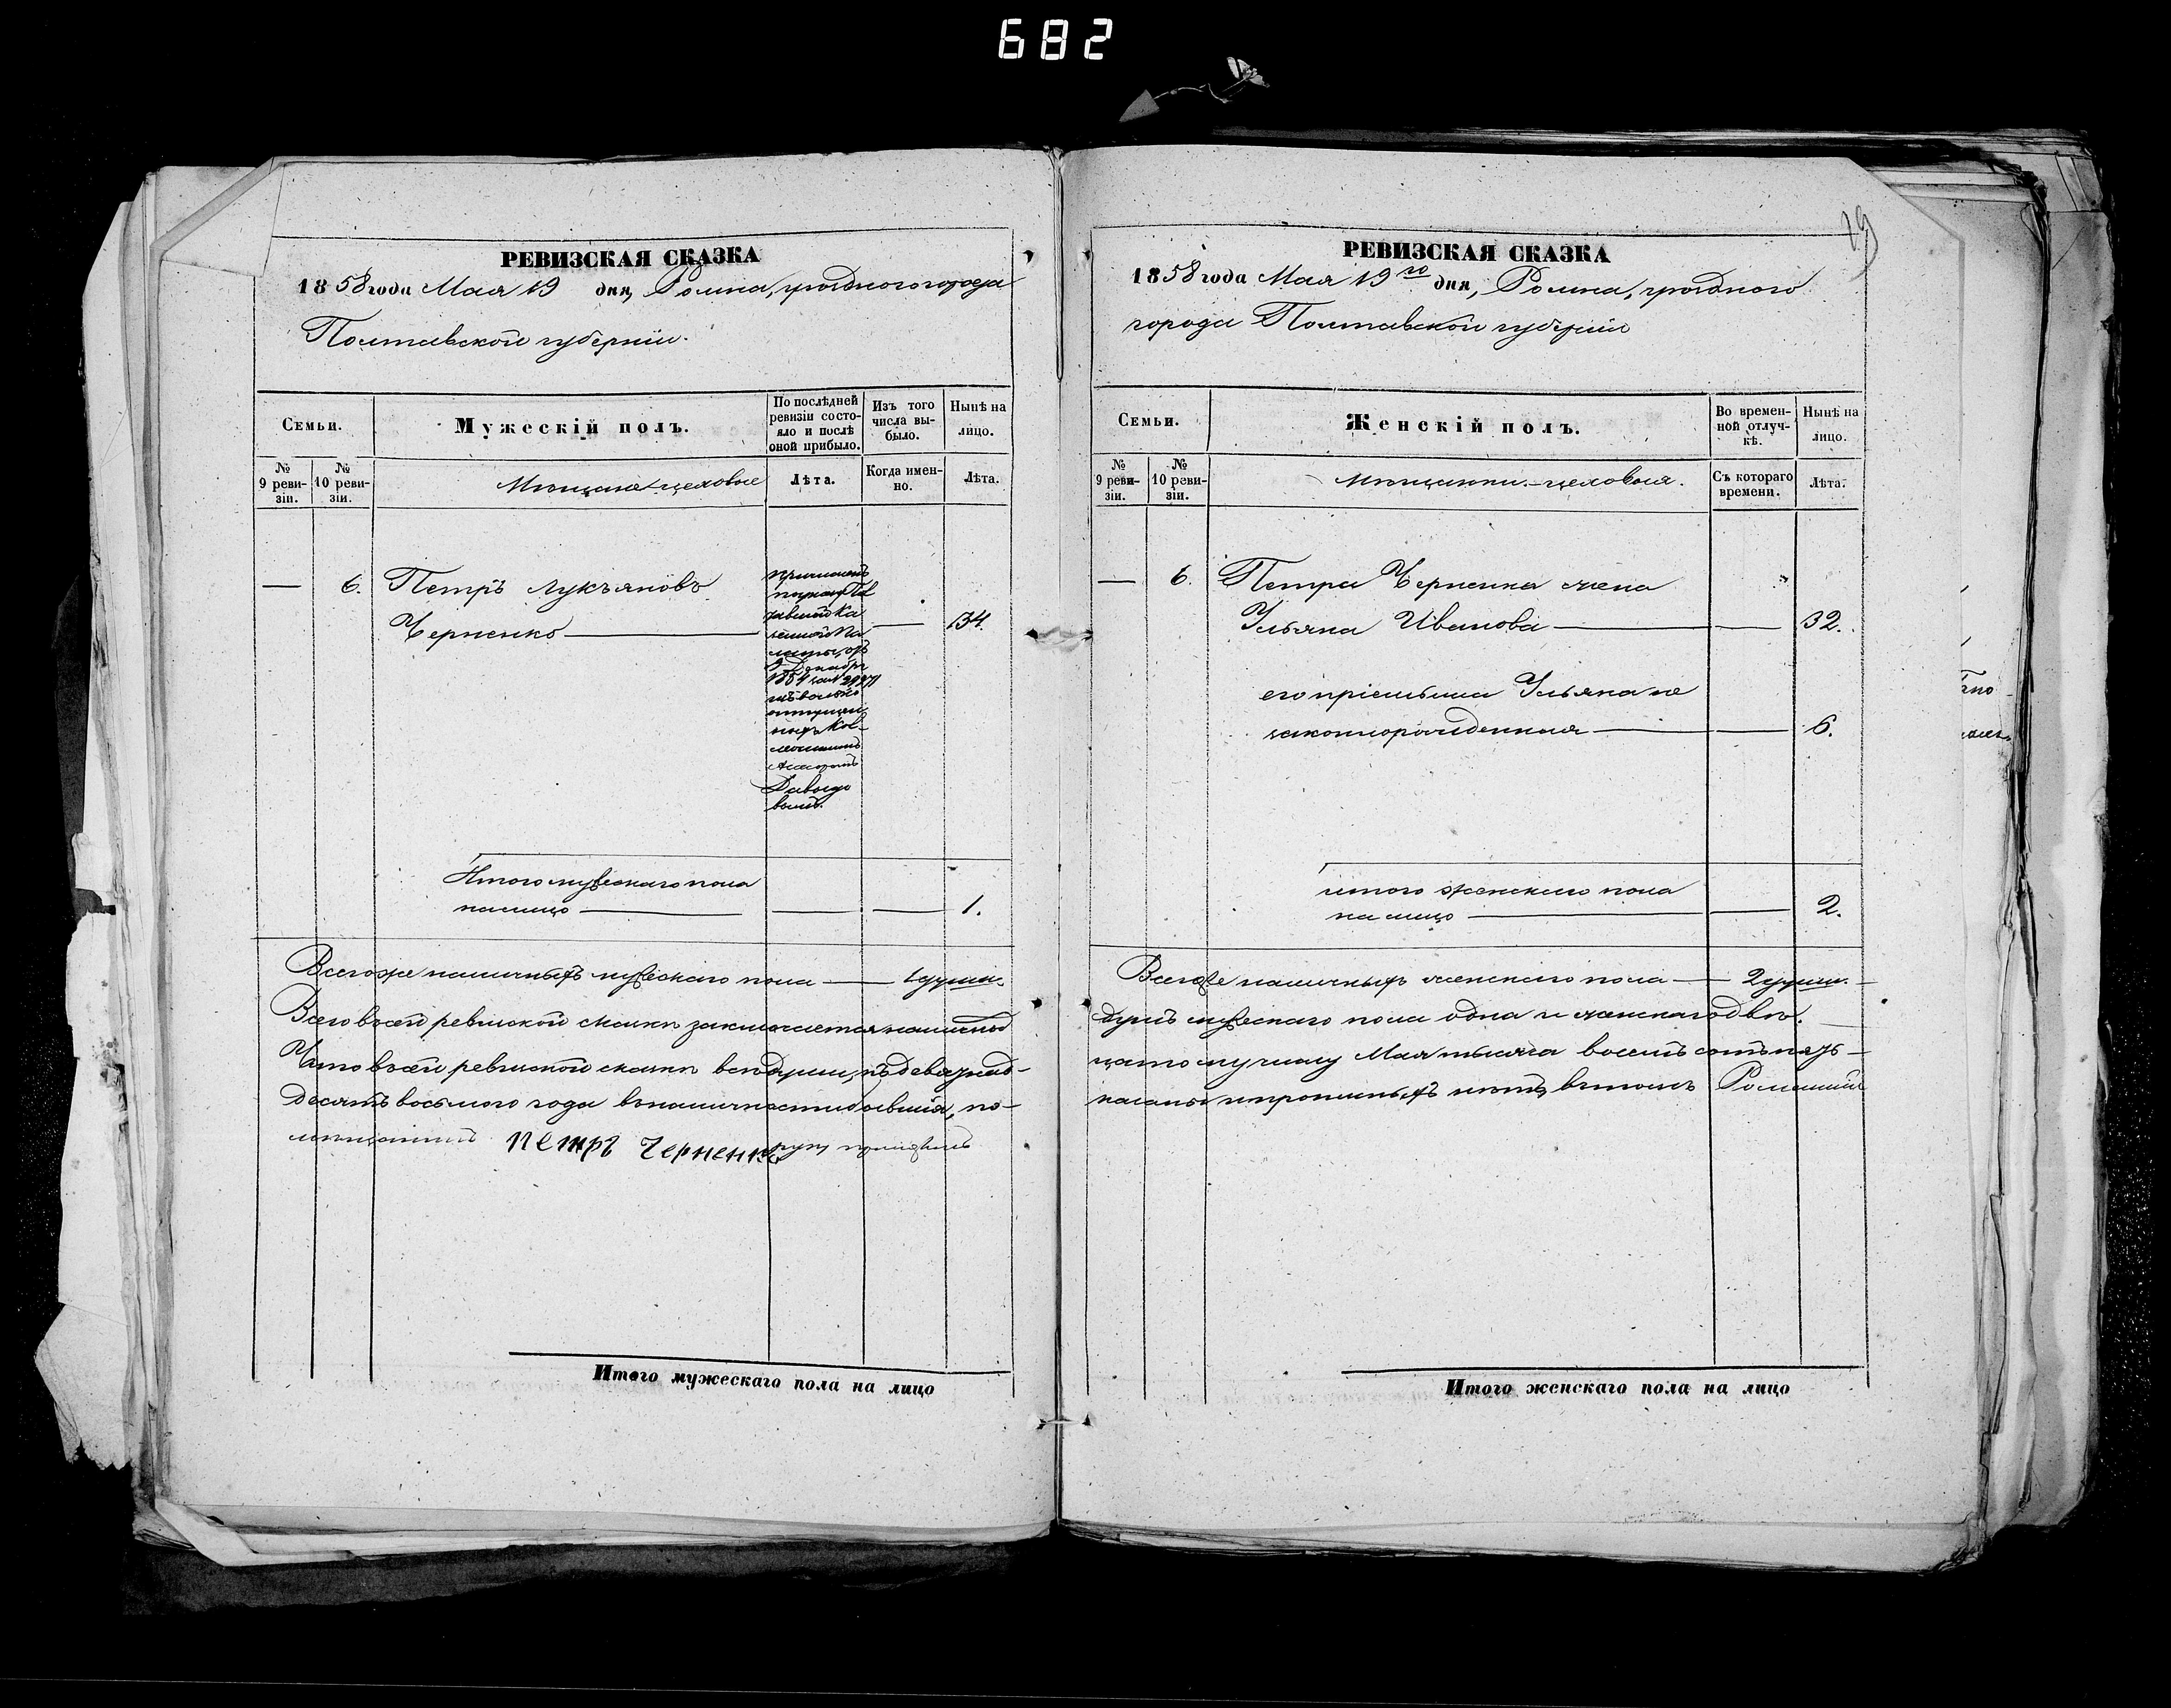 682
29
РЕВИЗСКАЯ СКАЗКА
1858 года Мая 19 дня, Ромна, уѣзднаго города
Полтавской губерніи.
Семьи.
Мужескій полъ.
По послѣдней ревизіи состояло и послѣ оной прибыло.
Изъ того числа выбыло.
Нынѣ на лицо.
№ 9 ревизіи.
№ 10 ревизіи.
Мѣщане цеховые
Лѣта.
Когда именно.
Лѣта.
— 6. Петръ Лукьяновъ
Черненко — — 34.
причисленъ
Ка
зенной Па
латы, отъ
Декабря
1854
вольно
отпущен
ныхъ
Давыдо
вымъ.
Итого мужескаго пола
налицо — — — 1.
Всего же наличныхъ мужескаго пола — 1 душа.
Всего въ сей ревизской сказкѣ заключается наличныхъ
Что въ сей ревизской сказкѣ всѣ души, къ девятнад-
десятъ восьмого года въ наличности бывшія, по-
мѣщанинъ Петръ Черненко руку приложилъ
Итого мужескаго пола на лицо
РЕВИЗСКАЯ СКАЗКА
1858 года Мая 19го дня, Ромна, уѣзднаго
города Полтавской губерніи
Семьи.
Женскій полъ.
Во временной отлучкѣ.
Нынѣ на лицо.
№ 9 ревизіи.
№ 10 ревизіи.
Мѣщанки — цеховыя.
Съ котораго времени.
Лѣта.
— 6. Петра Черненка жена
Ульяна Иванова — — 32.
его пріемыша Ульяна не
законнорожденная — — 6.
итого женскаго пола
на лицо — — 2.
Всего же наличныхъ женскаго пола — 2 души.
душъ мужескаго пола одна и женскаго двѣ.
цатому числу Мая тысяча восемь сотъ пять-
казаны и пропиныхъ нѣтъ, въ томъ Роменскій
Итого женскаго пола на лицо